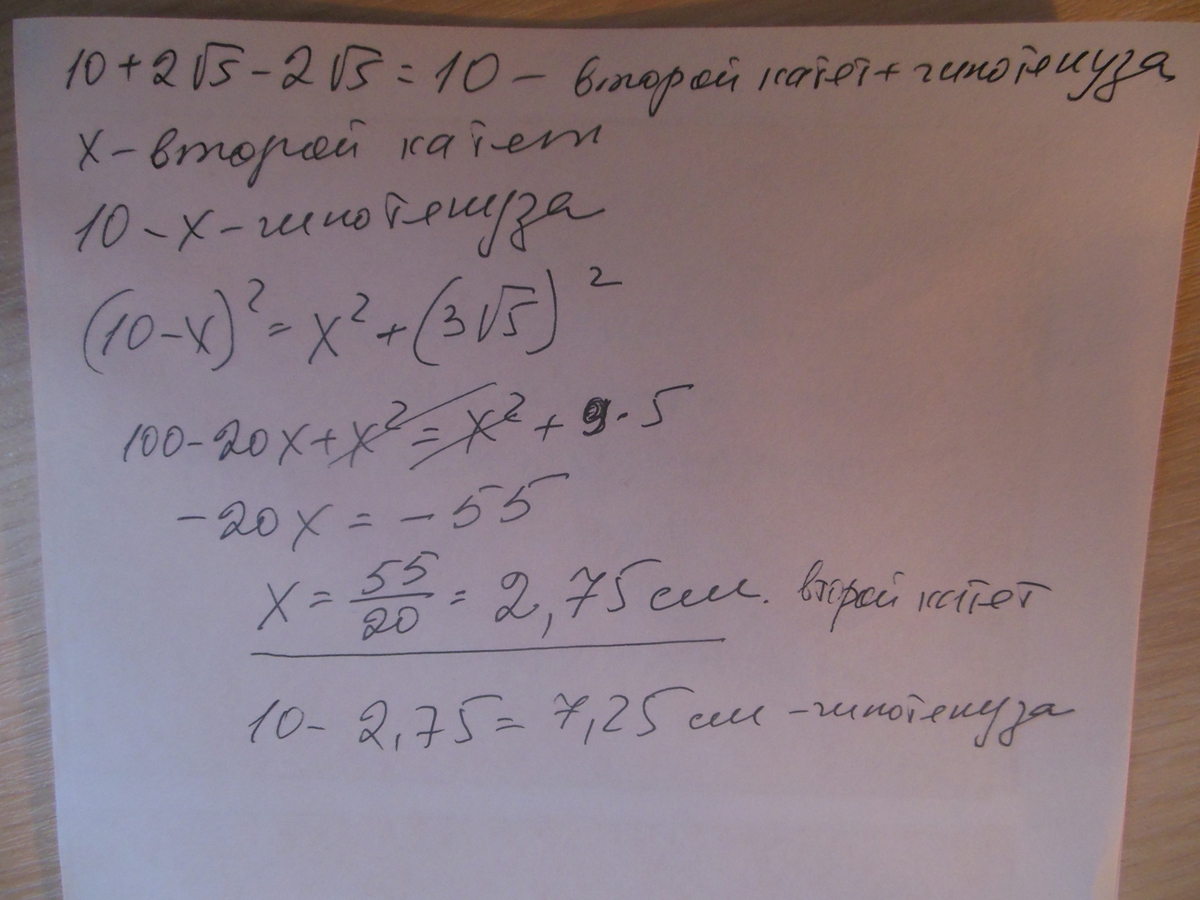 10+2√5-2√5=10 - второй катет+гипотенуза
x - второй катет
10-x-гипотенуза
(10-x)²=x²+(3√5)²
100-20x+x²=x²+9·5
-20x=-55
x=55/20=2,75см. второй катет
10-2,75=7,25см-гипотенуза